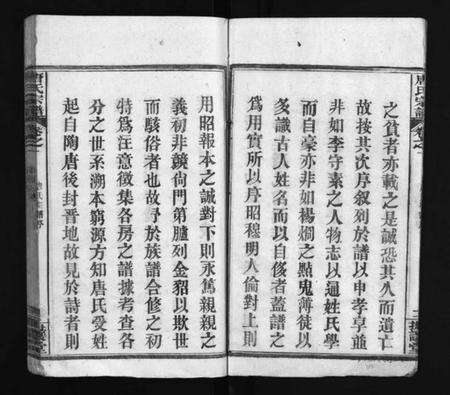 之貧者亦載之是誠恐其久而遺亡
故按其次序叙列於譜以申孝享並
非如李守素之人物志以逼姓氏學
而自豪亦非如楊烱之點鬼薄徒以
多識古人姓名而以自侈者蓋譜之
為用實所以序昭穆明人倫對上則
用昭報本之誠對下則永篤親親之
義初非競尙門第臚列金貂以欺世
而駭俗者也故予於族譜合修之初
特為注意徵集各房之譜據考查各
分之世系溯本窮源方知唐氏受姓
起自陶唐後封晋地故見於詩者則
唐氏宗譜
卷之
唐氏宗譜
卷之